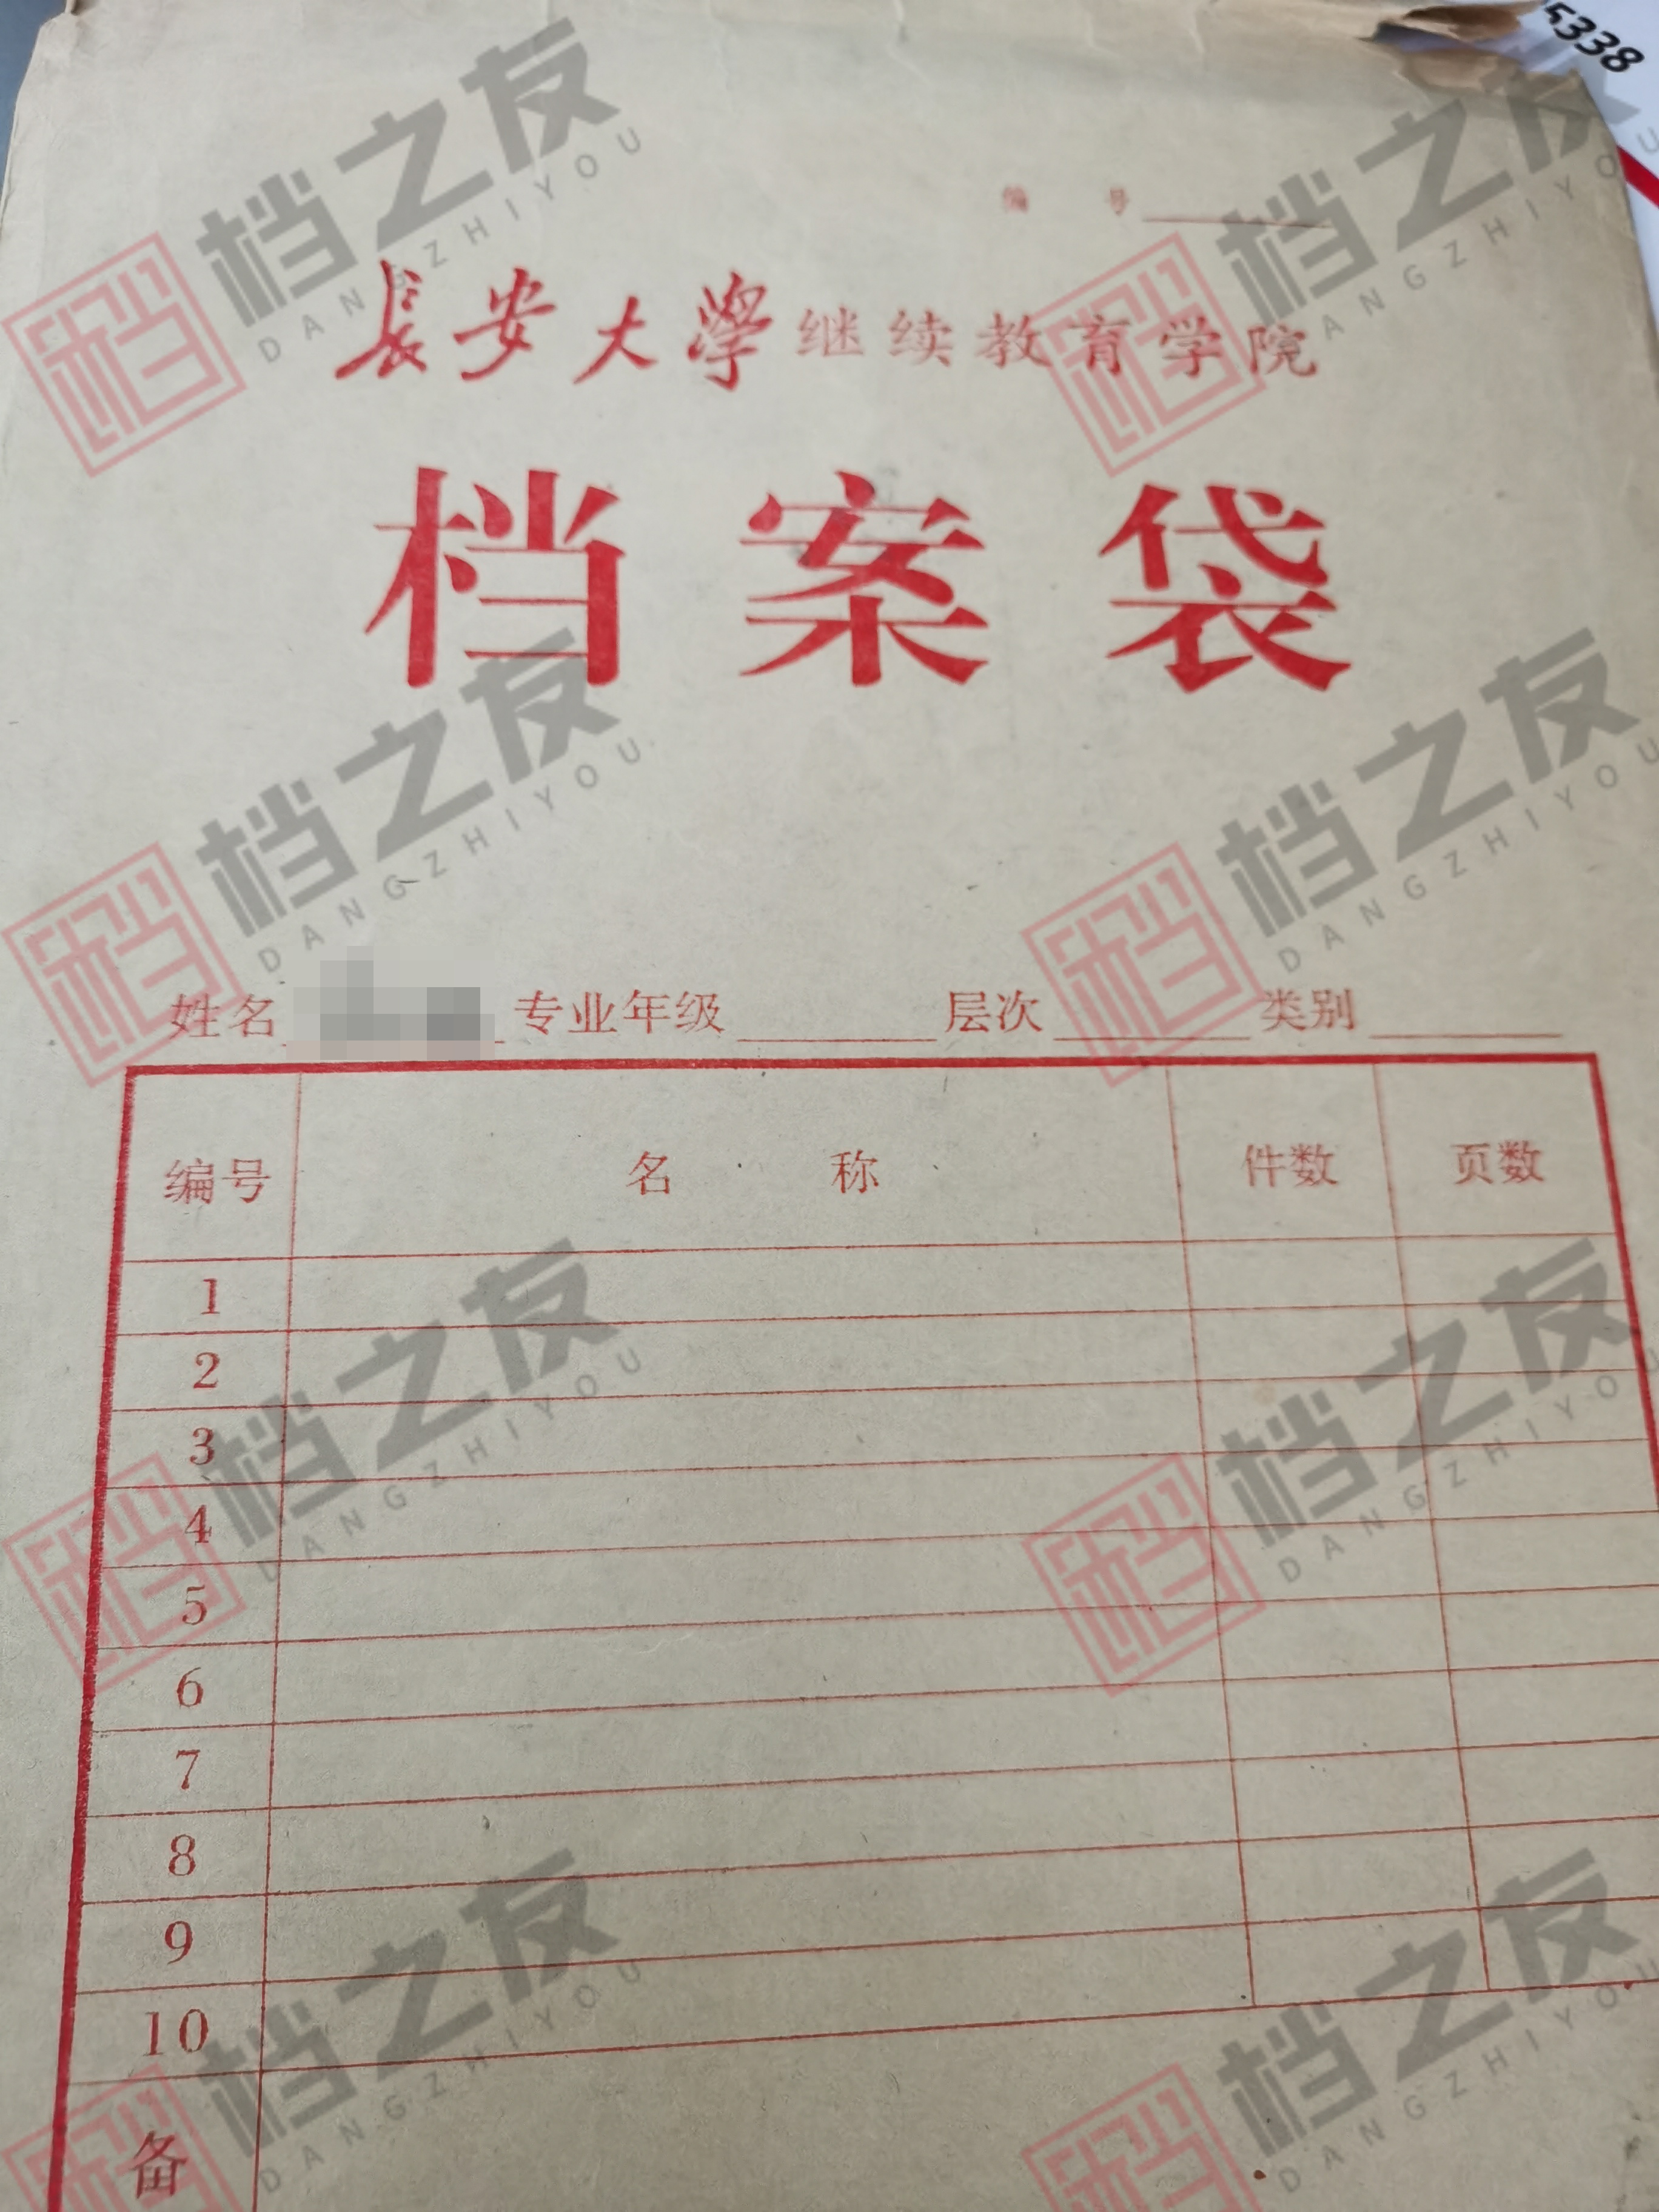 5338
编 号
長安大學继续教育学院
档案袋
姓名 专业年级 层次 类别
编号 名 称 件数 页数
1
2
3
4
5
6
7
8
9
10
备
档之友
DANGZHIYOU
档之友
DANGZHIYOU
档之友
DANGZHIYOU
档之友
DANGZHIYOU
档之友
DANGZHIYOU
档之友
DANGZHIYOU
档之友
DANGZHIYOU
档之友
DANGZHIYOU